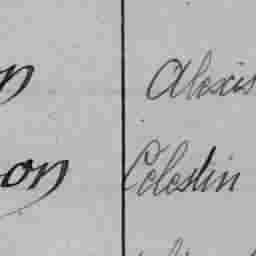 n Alexis
on Celestin